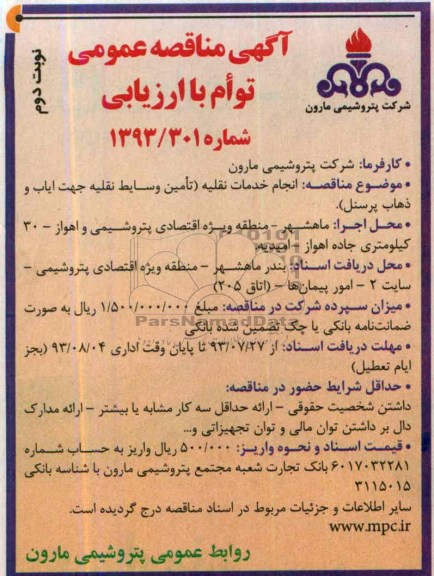 نوبت دوم
آگهی مناقصه عمومی
توأم با ارزیابی
شماره ۱۳۹۳/۳۰۱
شرکت پتروشیمی مارون
• کارفرما: شرکت پتروشیمی مارون
• موضوع مناقصه: انجام خدمات نقلیه (تأمین وسایط نقلیه جهت ایاب و
ذهاب پرسنل).
• محل اجرا: ماهشهر - منطقه ویژه اقتصادی پتروشیمی و اهواز - ۳۰
کیلومتری جاده اهواز - امیدیه.
• محل دریافت اسناد: بندر ماهشهر - منطقه ویژه اقتصادی پتروشیمی -
سایت ۲ - امور پیمان‌ها - (اتاق ۲۰۵)
• میزان سپرده شرکت در مناقصه: مبلغ ۱/۵۰۰/۰۰۰/۰۰۰ ریال به صورت
ضمانت‌نامه بانکی یا چک تضمین شده بانکی
ParsNamadData
• مهلت دریافت اسناد: از ۹۳/۰۷/۲۷ تا پایان وقت اداری ۹۳/۰۸/۰۴ (بجز
ایام تعطیل)
• حداقل شرایط حضور در مناقصه:
داشتن شخصیت حقوقی - ارائه حداقل سه کار مشابه یا بیشتر - ارائه مدارک
دال بر داشتن توان مالی و توان تجهیزاتی و...
• قیمت اسناد و نحوه واریز: ۵۰۰/۰۰۰ ریال واریز به حساب شماره
۶۰۱۷۰۳۲۲۸۱ بانک تجارت شعبه مجتمع پتروشیمی مارون با شناسه بانکی
۳۱۱۵۰۱۵
سایر اطلاعات و جزئیات مربوط در اسناد مناقصه درج گردیده است.
www.mpc.ir
روابط عمومی پتروشیمی مارون